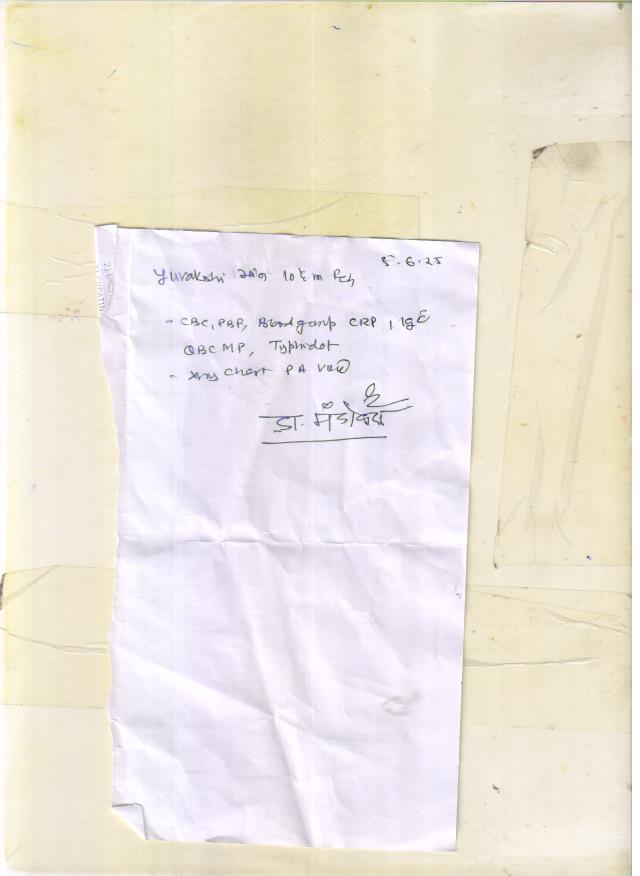 5.6.25
Yuvakshi 10 Fch
- CBC, PBF, Blood group CRP, IgE
QBC MP, Typhidot
- Xray Chest P A View
डा.